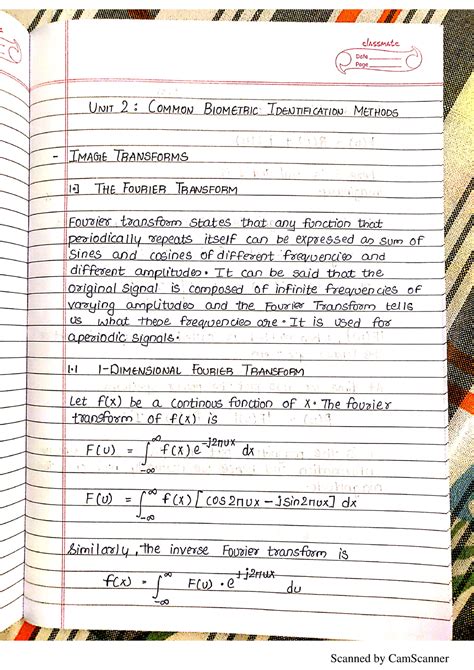 classmate
Date
Page
UNIT 2 : COMMON BIOMETRIC IDENTIFICATION METHODS
- IMAGE TRANSFORMS
1·] THE FOURIER TRANSFORM
Fourier transform states that any function that
periodically repeats itself can be expressed as sum of
sines and cosines of different frequencies and
different amplitudes. It can be said that the
original signal is composed of infinite frequencies of
varying amplitudes and the Fourier Transform tells
us what these frequencies are. It is used for
aperiodic signals.
1.1 1-DIMENSIONAL FOURIER TRANSFORM
Let f(x) be a continous function of x. The fourier
transform of f(x) is
F(u) = ∫_{-∞}^{∞} f(x) e^{-j2πux} dx
F(u) = ∫_{-∞}^{∞} f(x) [cos2πux - jsin2πux] dx
Similarly, the inverse Fourier transform is
f(x) = ∫_{-∞}^{∞} F(u) · e^{+j2πux} du
Scanned by CamScanner